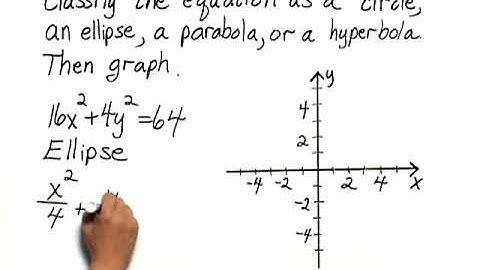 Classify the equation as a circle,
an ellipse, a parabola, or a hyperbola.
Then graph.
16x²+4y²=64
Ellipse
x²/4 +
y
4
2
-4 -2 2 4 x
-2
-4